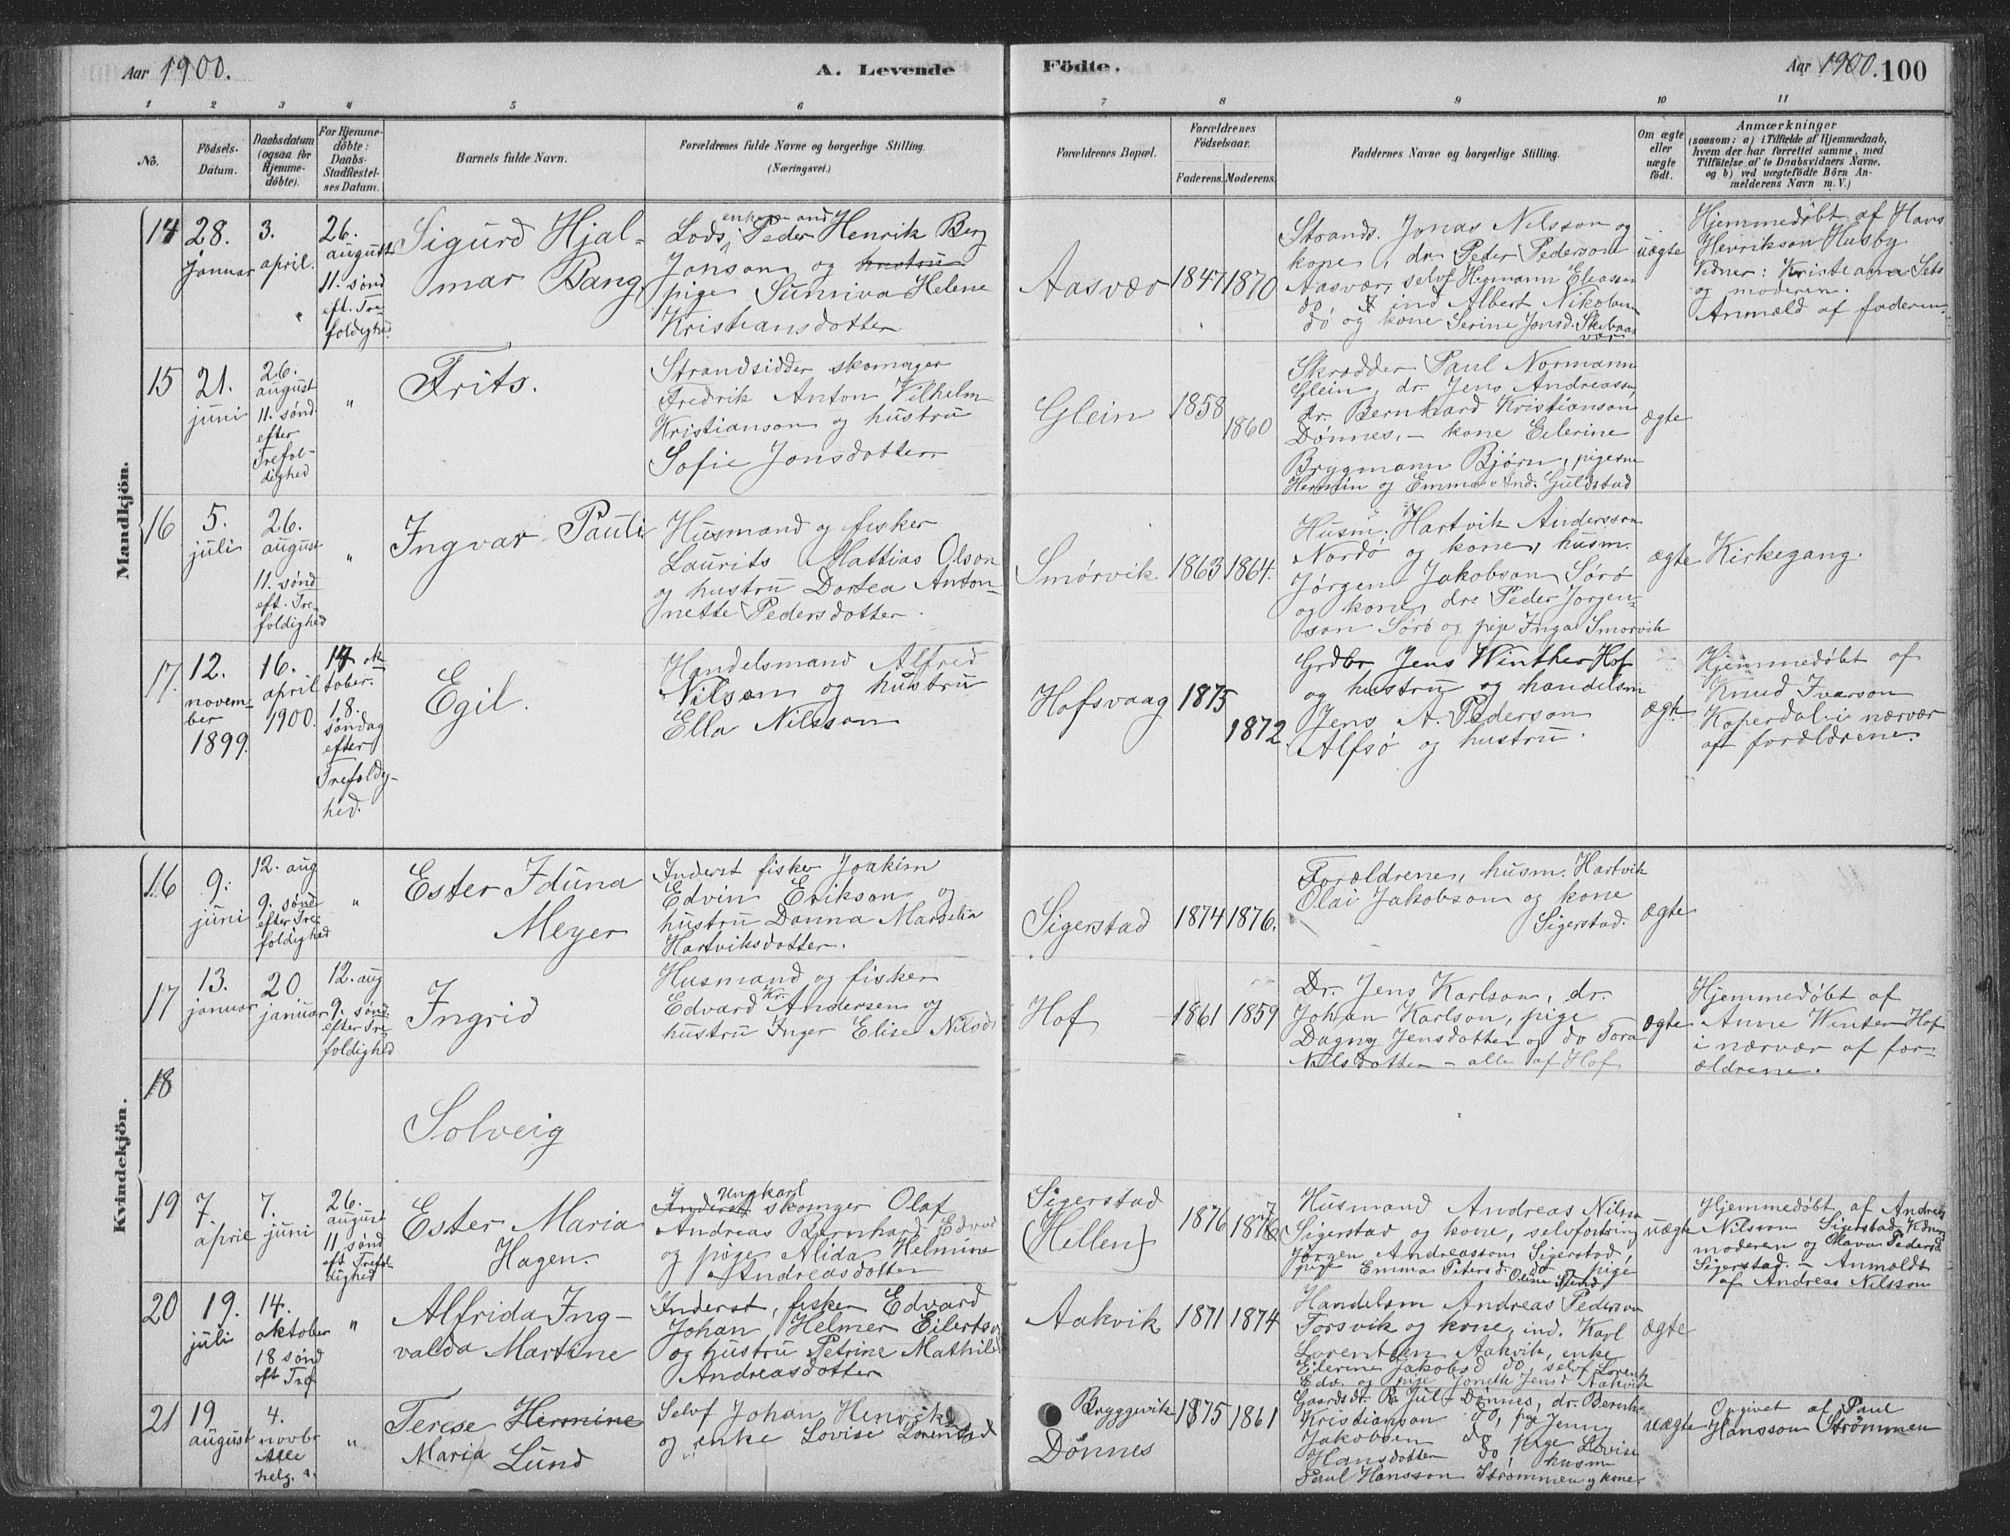 Aar 1900.
A. Levende
Födte.
Aar 1900.
100
1 2 3 4 5 6 7 8 9 10 11
No.
Födsels-
Datum.
Daabsdatum
(ogsaa for
Hjemme-
döbte).
For Hjemme-
döbte:
Daabs-
Stadfæstel-
ses Datum.
Barnets fulde Navn.
Forældrenes fulde Navne og borgerlige Stilling.
(Næringsvei.)
Forældrenes Bopæl.
Forældrenes
Födselsaar.
Faderens. Moderens.
Faddernes Navne og borgerlige Stilling.
Om ægte
eller
uægte
födt.
Anmærkninger
(saasom: a) i Tilfælde af Hjemmedaab,
hvem der har forrettet samme, med
Tilföielse af to Daabsvidners Navne,
og b) ved uægtefödte Börn An-
melderens Navn m. V.)
Mandkjön.
14
28.
januar
3.
april.
26.
august
11. sønd
eft. Tre-
foldighed.
Sigurd Hjal-
mar Bang
enkemand
Lods, Peder Henrik Berg
Jonson og hustru
pige Sunniva Helene
Kristiansdotter
Aasvær
1847
1870
Strands. Jonas Nilsson og
kone, dr. Peder Pederson
Aasvær, selvf Hegmann Eliasson
do ind Albert Nikolais
do og kone Serine Jonsd. Skibaas
vær
uægte
Hjemmedøbt af Hans
Henrikson Husby
Vidner: Kristiana
og moderen.
Anmeld af faderen.
15
21.
juni
26.
august
11. sønd
efter
Trefol-
dighed
"
Frits.
Strandsidder skomager
Fredrik Anton Vilhelm
Kristianson og hustru
Sofie Jonsdotter
Glein
1858
1860
Skrædder Paul Normann
Glein, dr. Jens Andreasson,
dr. Bernhard Kristianson
Dønnes, – kone Eilerine
Brygmann Bjørn, pigerne
Hermin og Emma And. Guldstad
ægte
16
5.
juli
26.
august
11. sønd
eft. Tre-
foldighed
"
Ingvar Pauli
Husmand og fisker
Laurits Mattias Olson
og hustru Dortea Anton-
nette Pedersdotter.
Smørvik
1863
1864.
Husm. Hartvik Andersson
Nordø og kone, husm.
Jørgen Jakobson Sørø
og kone, dr. Peder Jørgen-
son Sørø og pige Inga Smørvik
ægte
Kirkegang.
17.
12.
novem-
ber
1899.
16.
april
1900.
14 ok-
tober.
18.
søndag
efter
Trefoldig-
hed.
Egil.
Handelsmand Alfred
Nilson og hustru
Ella Nilsson
Hofsvaag
1875
1872
Grdbr Jens Winther Hof
og hustru og handelsm
Jens A. Pederson
Alfsø og hustru.
ægte
Hjemmedøbt af
Knud Ivarson
Koperdal i nærvær
af forældrene.
Kvindekjön.
16
9.
juni
12. aug
9. sønd
efter Tre-
foldighed
"
Ester Iduna
Meyer
Inderst fisker Joakim
Edvin Erikson og
hustru Danna Marselia
Hartviksdotter.
Sigerstad
1874
1876.
Forældrene, husm. Hartvik
Olai Jakobson og kone
Sigerstad.
ægte
17
13.
januar
20
januar
12. aug
9. sønd.
efter Tre-
foldighed
Ingrid
Husmand og fisker
Edvard Kr. Andersen og
hustru Inger Elise Nilsd.
Hof
1861
1859
Dr. Jens Karlson, dr.
Johan Karlson, pige
Dagny Jensdotter og do Tora
Nilsdotter – alle af Hof
ægte
Hjemmedøbt af
Anne Winter Hof
i nærvær af for-
ældrene.
18
Solveig
19
7.
april
7.
juni
26.
august
11 sønd
eft Trefol-
dighed
Ester Maria
Hagen.
ungkarl
Inderst skomger Olaf
Andreas Bernhard Edvard
og pige Alida Helmine
Andreasdotter
Sigerstad
(Hellen)
1876
1876
Husmand Andreas Nilsson
Sigerstad og kone, selvfostring
Jørgen Andreassom Sigerstad,
pige Emma Petersd. do pige
uægte
Hjemmedøbt af Andreas
Nilsson Sigerstad. Vidner
moderen og Pedersd
Sigerstad. – Anmeldt
af Andreas Nilsson
20
19.
juli
14.
oktober
18 sønd
eft Tref
"
Alfrida Ing-
valda Martine
Inderst, fisker Edvard
Johan Helmer Eilertsen
og hustru Petrine Mathilde
Andreasdotter
Aakvik
1871
1874
Handelsm Andreas Pederson
Forsvik og kone, ind. Karl
Lorentsen Aakvik, enke
Eilerine Jakobsd do, selvf Lorents
Edv. og pige Jonette Jensd Aakvik
ægte
21
19
august
4.
novbr
Alle
helg.
"
Terese Hermine
Maria Lund
Selvf Johan Henrik
og enke Lovise Lorentsd
Bryggevik
Dønnes
1875
1861
Gaardsdr. Jul Dønnes, dr. Bernh.
Kristianson do, pige Jenny
Jakobsen do pige Lovise
Hansdotter do husm
Paul Hansson Strømmen og kone
uægte
Opgivet af Paul
Hansson Strømmen